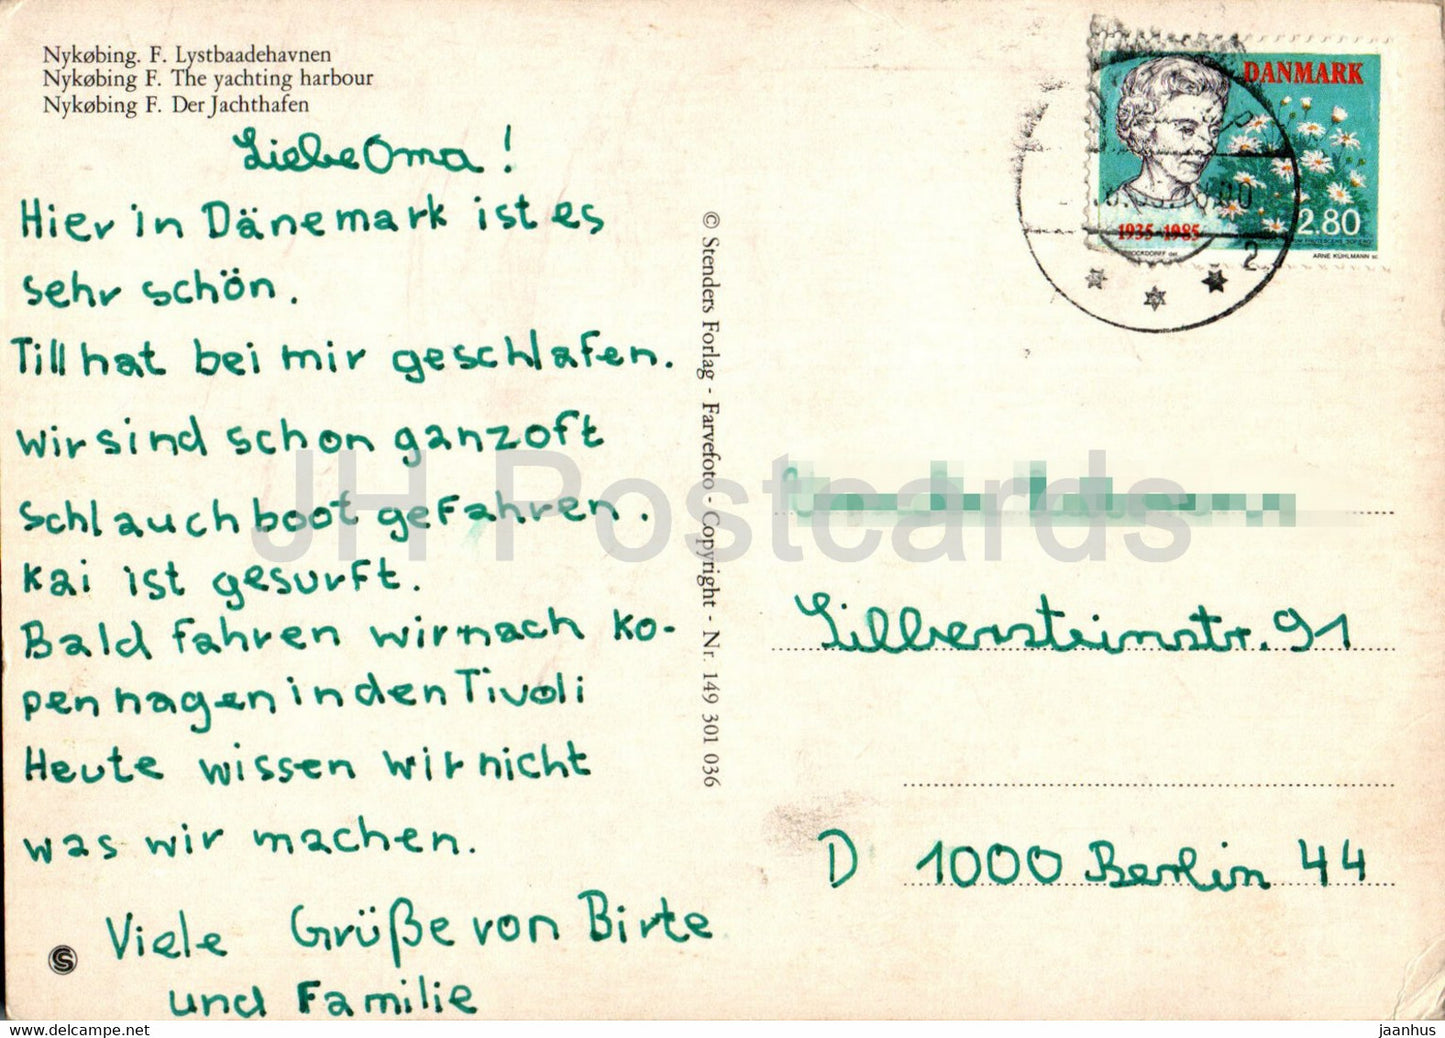 Nykøbing. F. Lystbaadehavnen
Nykøbing F. The yachting harbour
Nykøbing F. Der Jachthafen
Liebe Oma!
Hier in Dänemark ist es
sehr schön.
Till hat bei mir geschlafen.
wir sind schon ganz oft
Schlauchboot gefahren.
Kai ist gesurft.
Bald fahren wir nach Ko-
penhagen in den Tivoli
Heute wissen wir nicht
was wir machen.
Viele Grüße von Birte
und Familie
© Stenders Forlag - Farvefoto - Copyright - Nr. 149 301 036
DANMARK
1935-1985
2.80
ARNE KÜHLMANN sc.
2
Silbersteinstr. 91
D 1000 Berlin 44
JH Postcards
S
www.delcampe.net
jaanhus